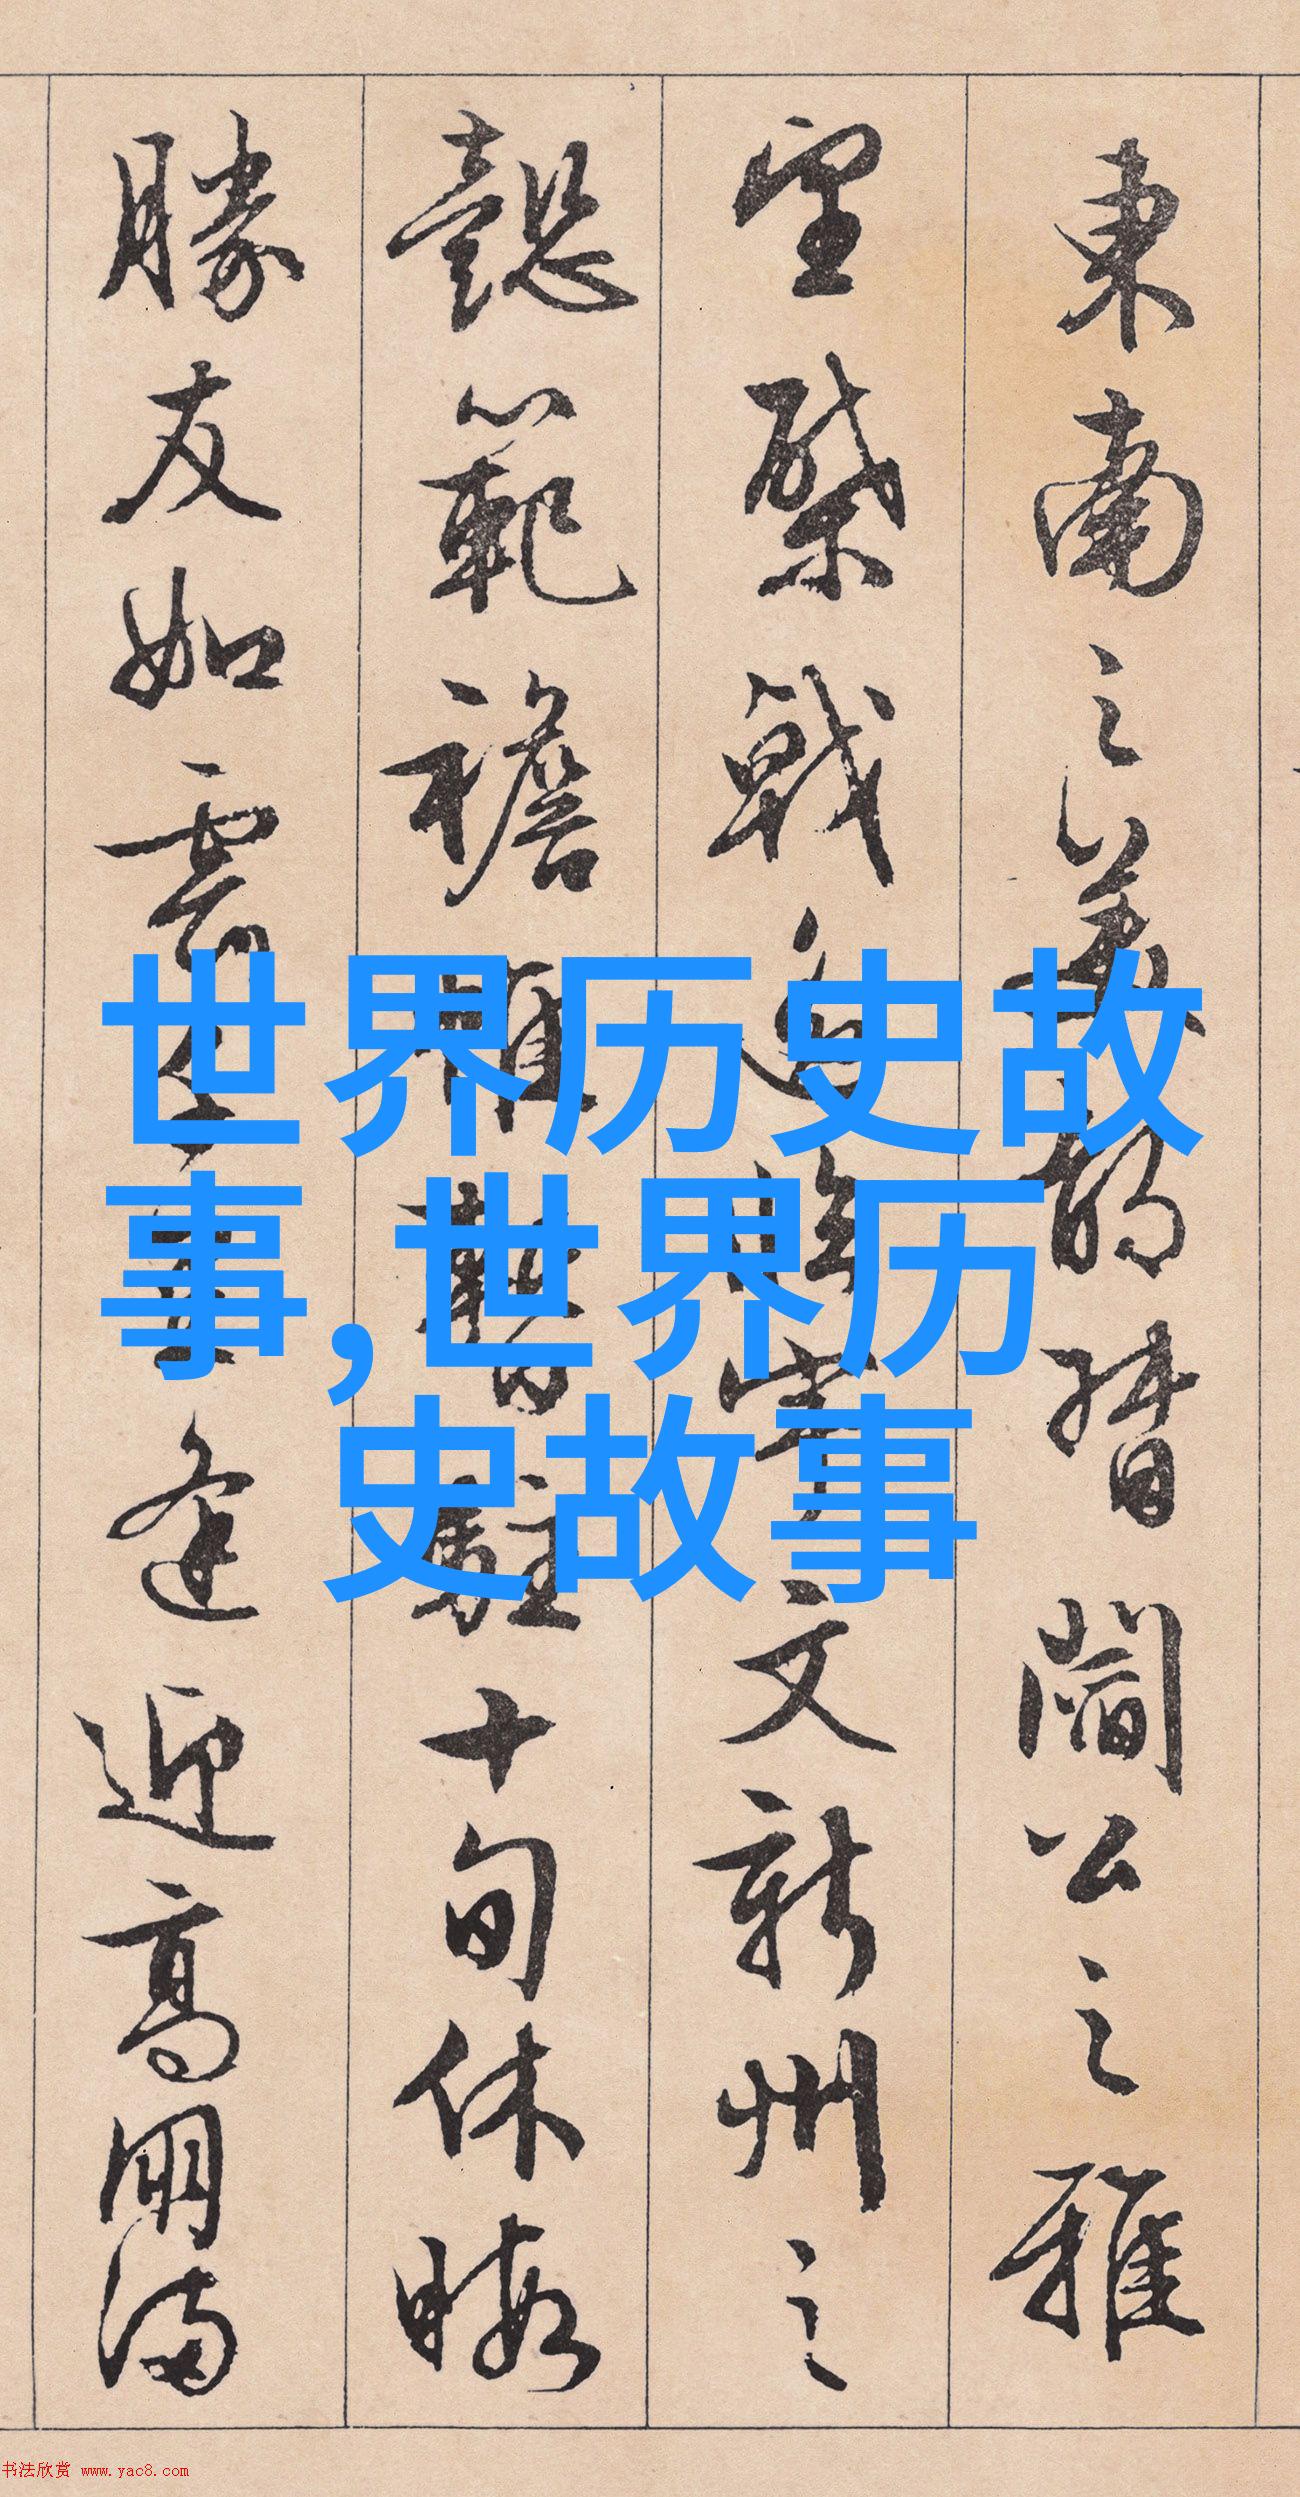 東南之美都督閻公之雅
望棨戟遥臨宇文新州之
懿範襜帷暫駐十旬休暇
勝友如雲千里逢迎高朋滿
世界历史故
事,世界历
史故事
书法欣赏 www.yac8.com